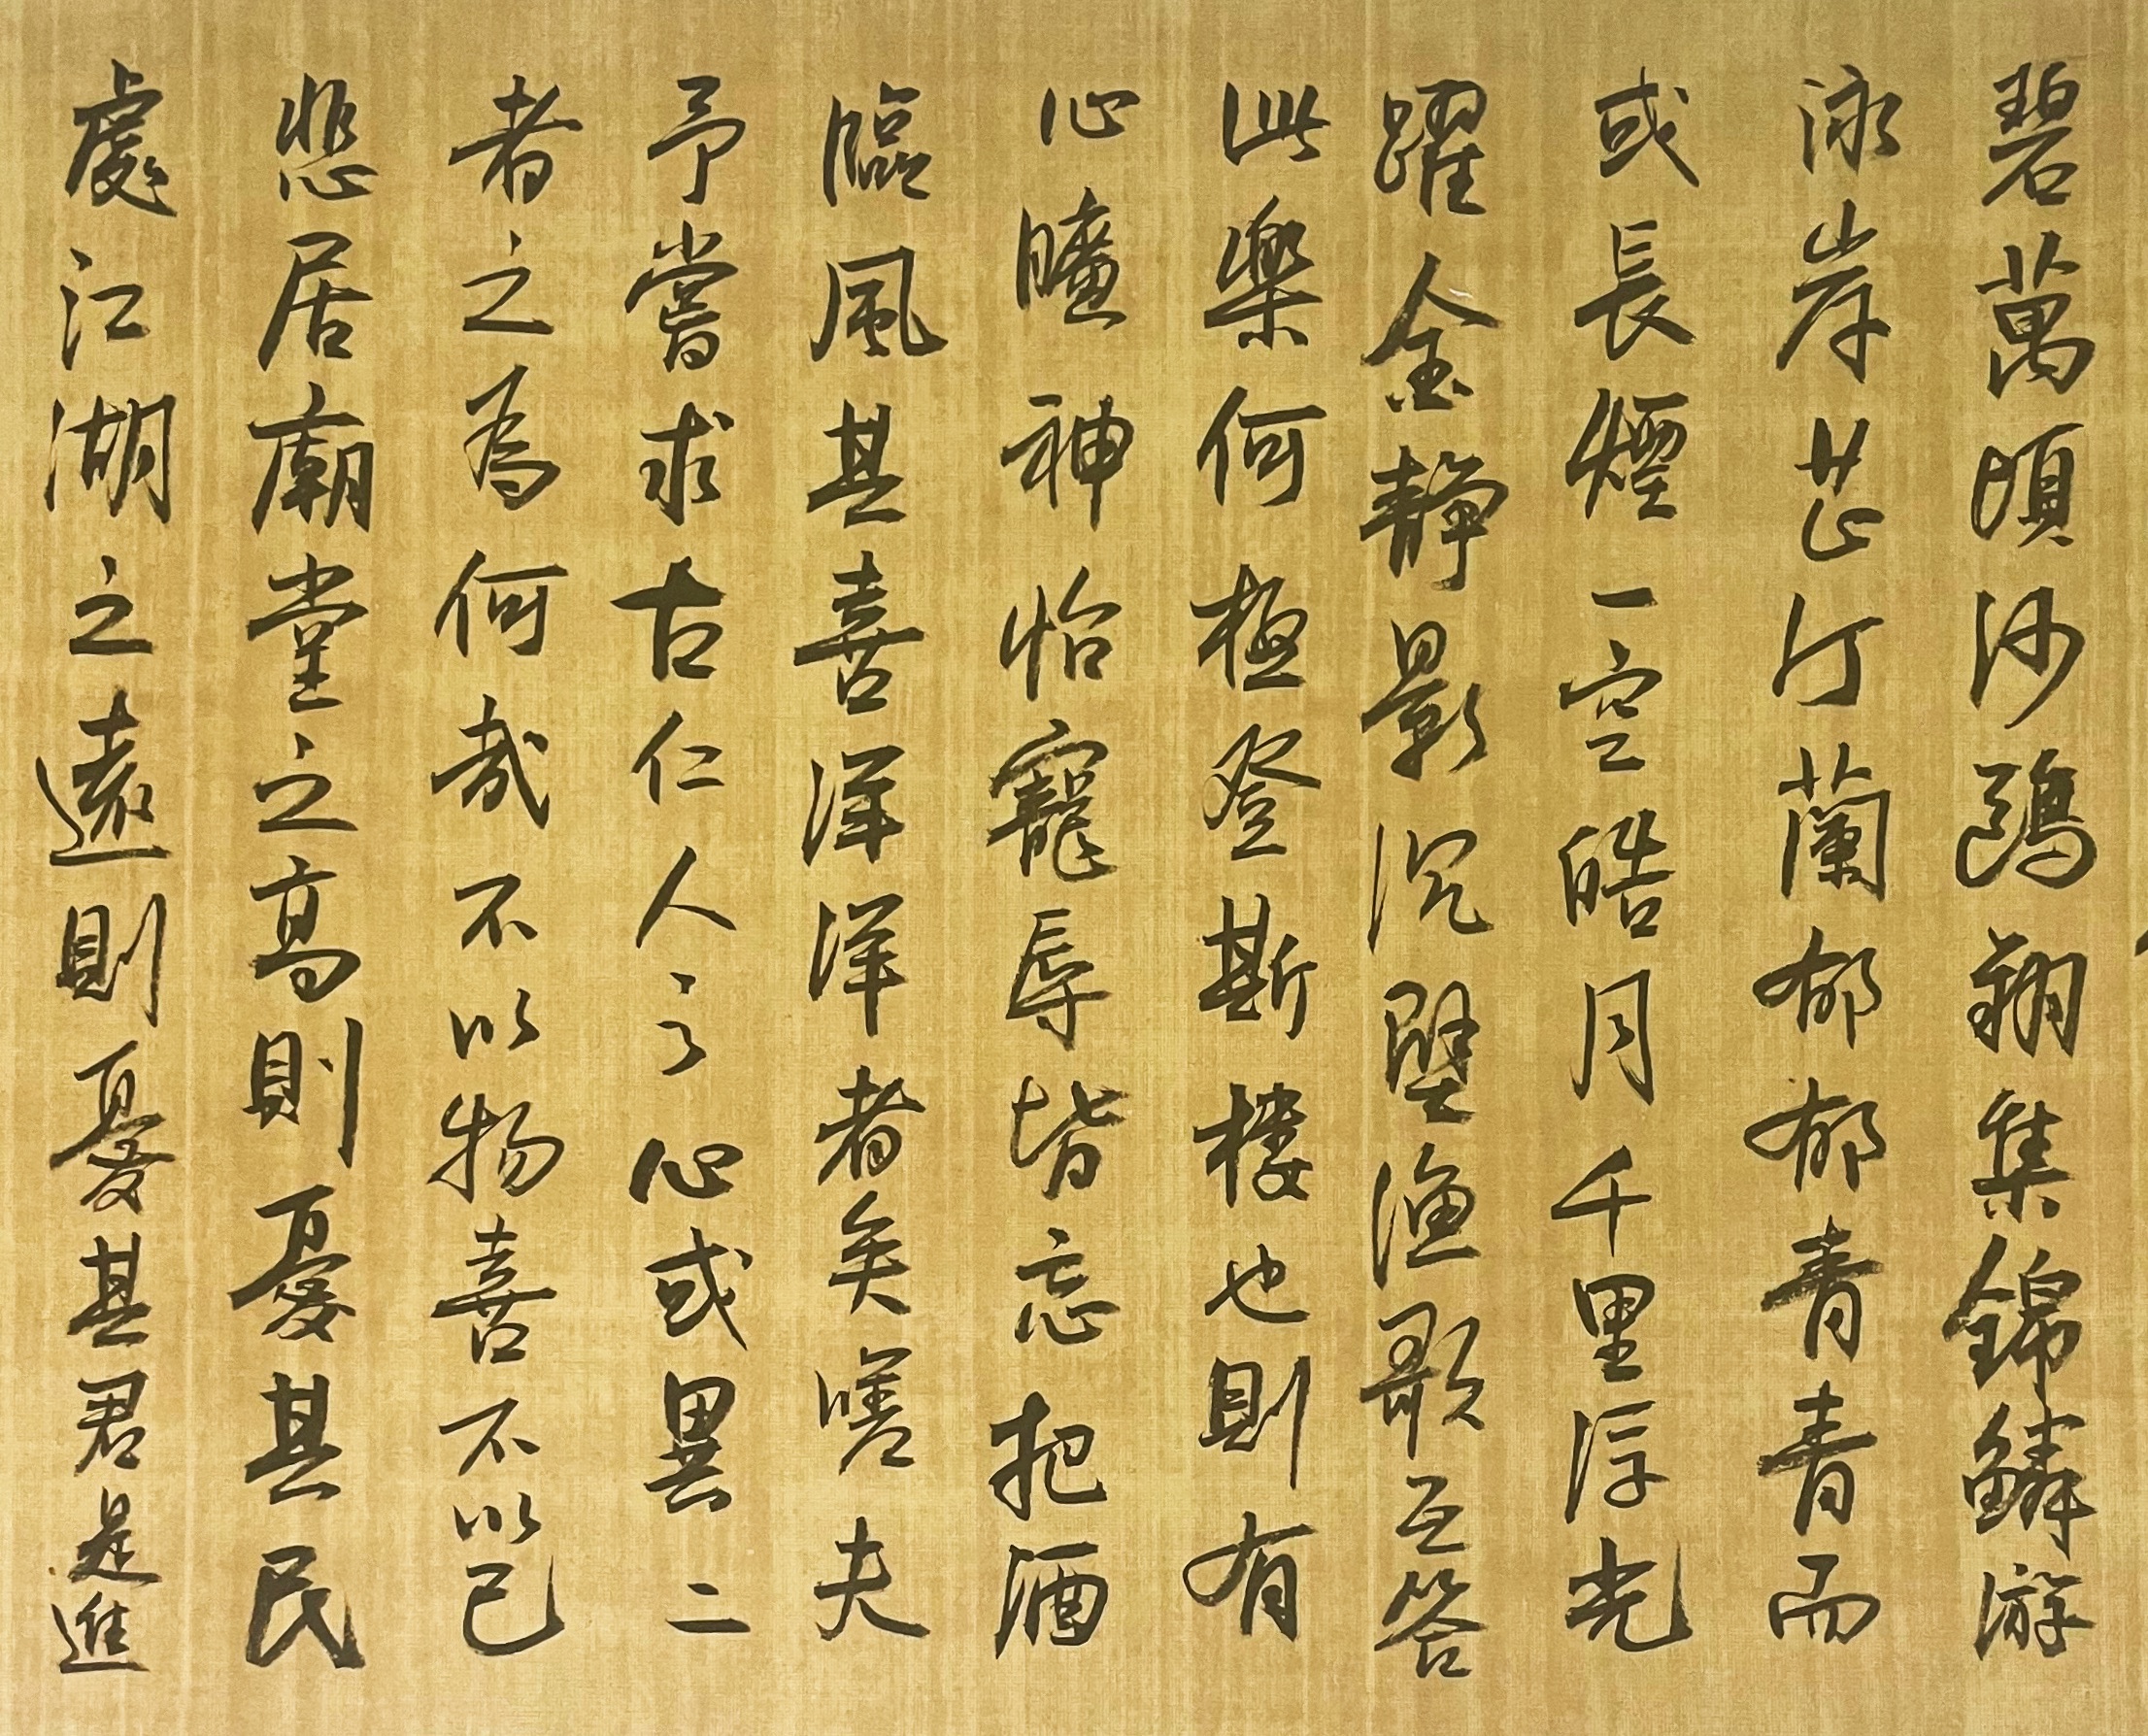 碧萬頃沙鷗翔集錦鱗游
泳岸芷汀蘭郁郁青青而
或長煙一空皓月千里浮光
躍金靜影沉壁漁歌互答
此樂何極登斯樓也則有
心曠神怡寵辱皆忘把酒
臨風其喜洋洋者矣嗟夫
予嘗求古仁人之心或異二
者之為何哉不以物喜不以己
悲居廟堂之高則憂其民
處江湖之遠則憂其君是進